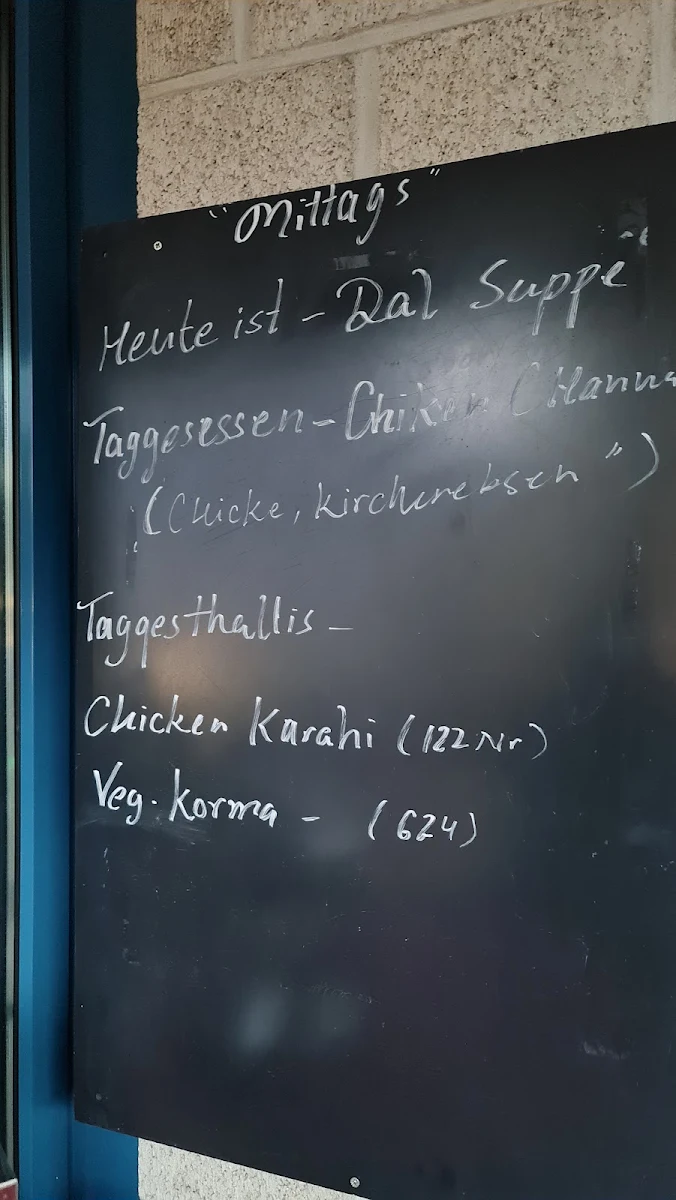 "Mittags"
Heute ist - Dal Suppe
Taggesessen - Chiken
(Chicke, kircherebsen")
Taggesthallis -
Chicken Karahi (122 Nr)
Veg. Korma - (624)